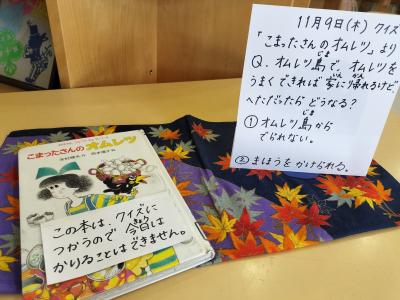 11月9日(木) クイズ
「こまったさんのオムレツ」より
Q. オムレツ島で、オムレツを
じま
うまくできれば家に帰れるけど
へただったら どうなる?
① オムレツ島から
じま
でられない。
② まほうをかけられる。
こまったさんのオムレツ
この本は、クイズに
つかうので 今日は
かりることはできません。